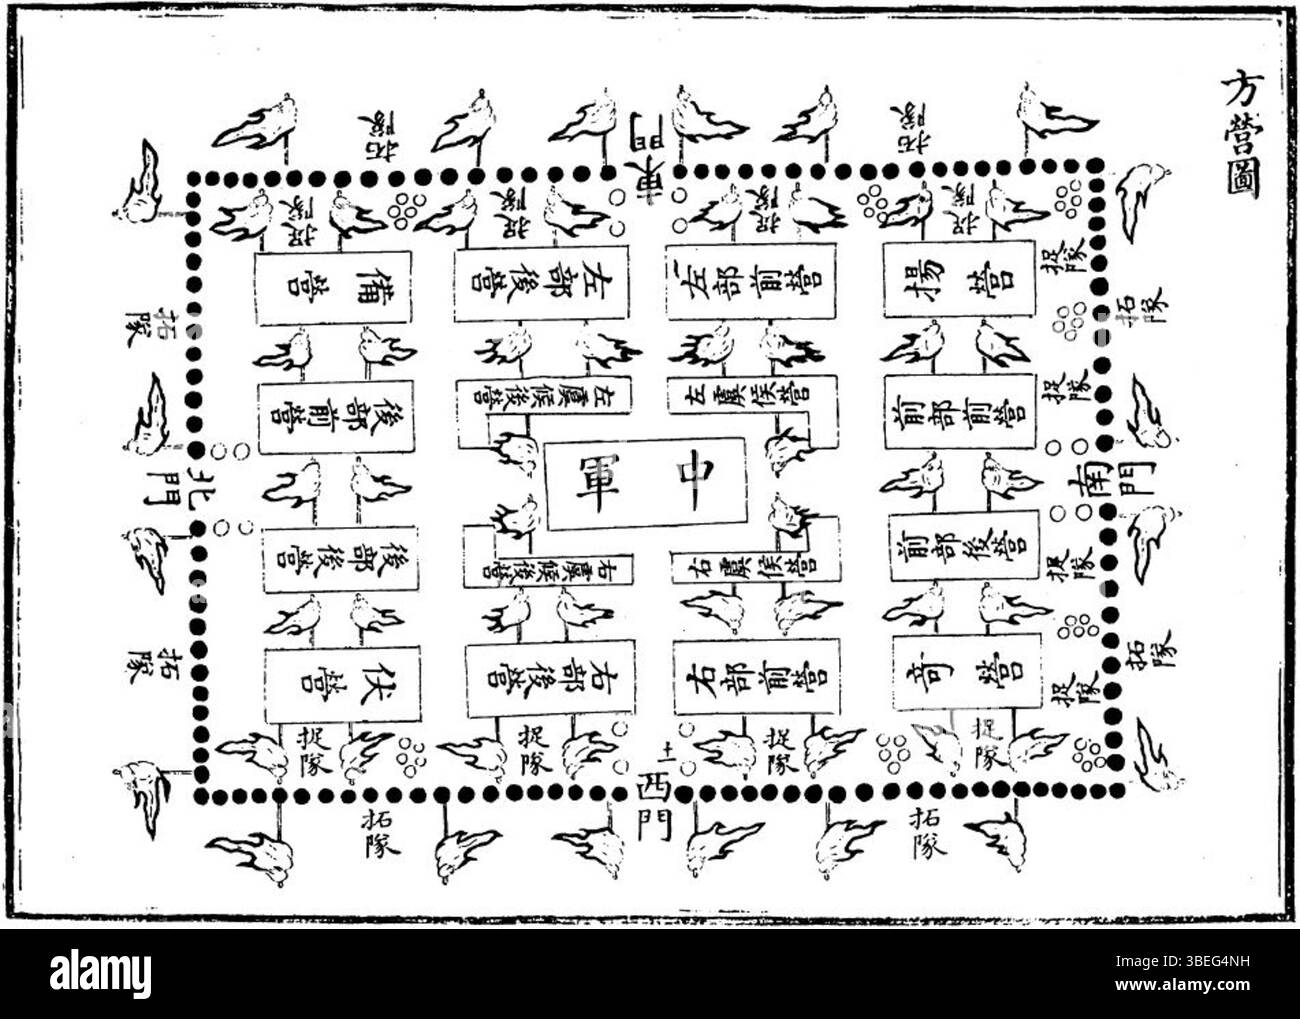 方營圖
拓隊
東門
拓隊
捉隊
捉隊
捉隊
捉隊
備營
左部後營
左部前營
揚營
捉隊
拓隊
拓隊
後部前營
左虞候後營
左虞侯營
前部前營
捉隊
中軍
北門
南門
後部後營
右虞候後營
右虞侯營
前部後營
捉隊
拓隊
拓隊
伏營
右部後營
右部前營
奇營
捉隊
捉隊
捉隊
捉隊
捉隊
土
西門
拓隊
拓隊
alamy
Image ID: 3BEG4NH
www.alamy.com